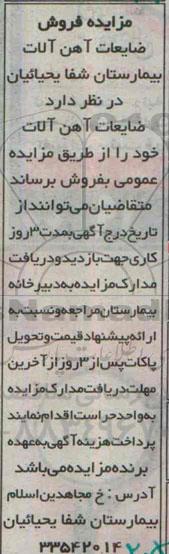 مزایده فروش
ضایعات آهن آلات
بیمارستان شفا یحیائیان
در نظر دارد
ضایعات آهن آلات
خود را از طریق مزایده
عمومی بفروش برساند
متقاضیان می توانند از
تاریخ درج آگهی بمدت ۳ روز
کاری جهت بازدید و دریافت
مدارک مزایده به دبیرخانه
بیمارستان مراجعه و نسبت به
ارائه پیشنهاد قیمت و تحویل
پاکات پس از ۳ روز از آخرین
مهلت دریافت مدارک مزایده
به واحد حراست اقدام نمایند
پرداخت هزینه آگهی به عهده
برنده مزایده می باشد
آدرس : خ مجاهدین اسلام
بیمارستان شفا یحیائیان
۳۳۵۴۲۰۱۴